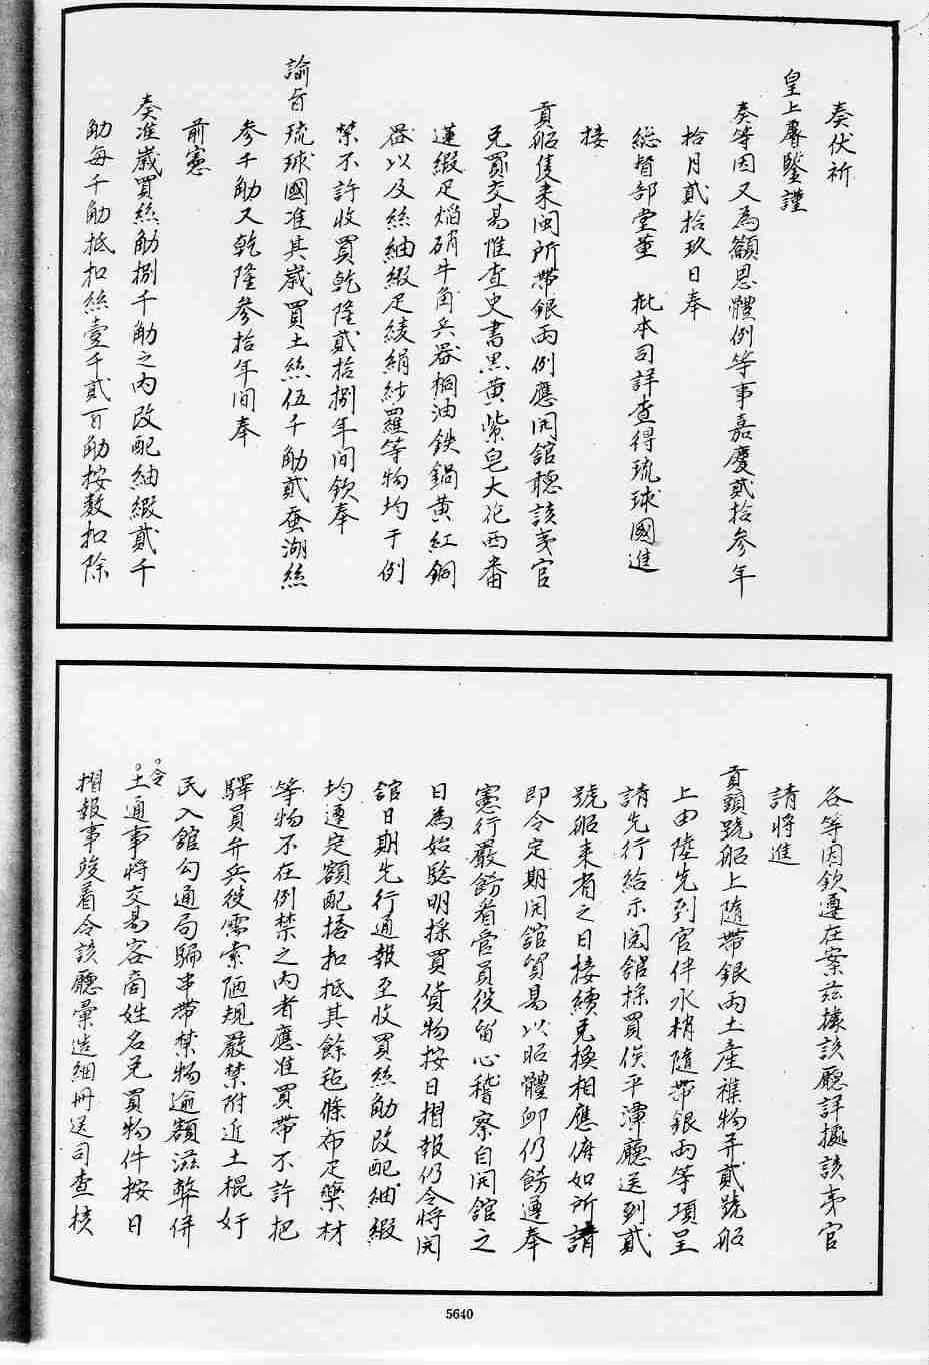 奏伏祈
皇上睿鑒謹
奏等因又為籲恩體例等事嘉慶貳拾參年
拾月貳拾玖日奉
総督部堂董　批本司詳查得琉球國進
接
貢船隻来閩所帶銀兩例應開舘聽該夷官
兌買交易惟查史書黒黄紫皂大花西番
蓮緞疋焰硝牛角兵器桐油鉄鍋黄紅銅
器以及絲紬緞疋綾絹紗羅等物均干例
禁不許收買乾隆貳拾捌年間欽奉
諭旨琉球國准其歲買土絲伍千觔貳蚕湖絲
參千觔又乾隆參拾年間奉
前憲
奏准歲買絲觔捌千觔之内改配紬緞貳千
觔每千觔抵扣絲壹千貳百觔按数扣除
各等因欽遵在案玆據該廳詳據該夷官
請將進
貢頭號船上隨帶銀兩土產襍物并貳號船
上由陸先到官伴水梢隨帶銀兩等項呈
請先行給示開舘採買俟平潭廳送到貳
號船来省之日接續兌換相應俯如所請
即令定期開舘貿易以昭體卹仍飭遵奉
憲行嚴飭看管員役留心稽察自開舘之
日為始驗明採買貨物按日摺報仍令將開
舘日期先行通報至收買絲觔改配紬緞
均遵定額配搭扣抵其餘毡條布疋藥材
等物不在例禁之内者應准買帶不許把
驛員弁兵役需索陋規嚴禁附近土棍奸
民入舘勾通局騙串帶禁物逾額滋弊併
令土通事將交易客商姓名兌買物件按日
摺報事竣着令該廳彙造細冊送司查核
5640